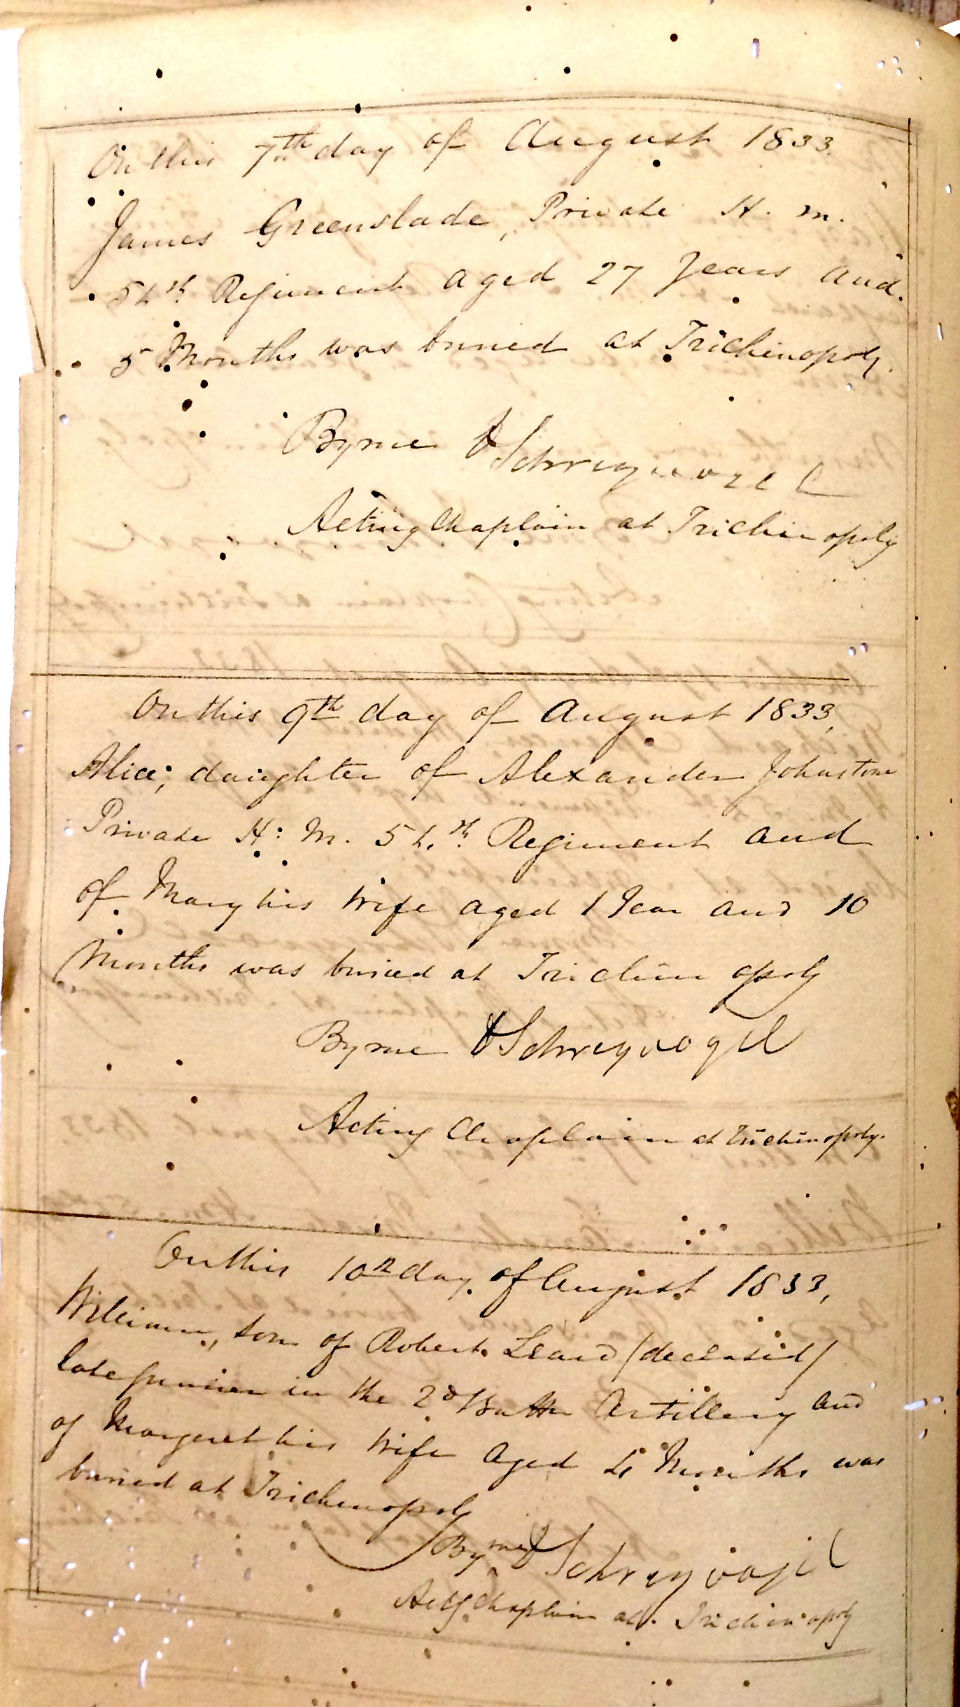 On this 7th day of August 1833.
James Greenslade, Private H. M.
54th Regiment aged 27 Years and
5 Months was buried at Trichinopoly.
By me J Schreyvogel
Acting Chaplain at Trichinopoly
On this 9th day of August 1833,
Alice, daughter of Alexander Johnstone
Private H: M. 54th Regiment and
of Mary his Wife aged 1 Year and 10
Months was buried at Trichinopoly
By me J Schreyvogel
Acting Chaplain at Trichinopoly.
On this 10th day of August 1833,
William, son of Robert Leard /deceased/
late in the 2d Battn Artillery and
of Margeret his Wife Aged 4 Months was
buried at Trichinopoly
By me J Schreyvogel
Actg Chaplain at Trichinopoly